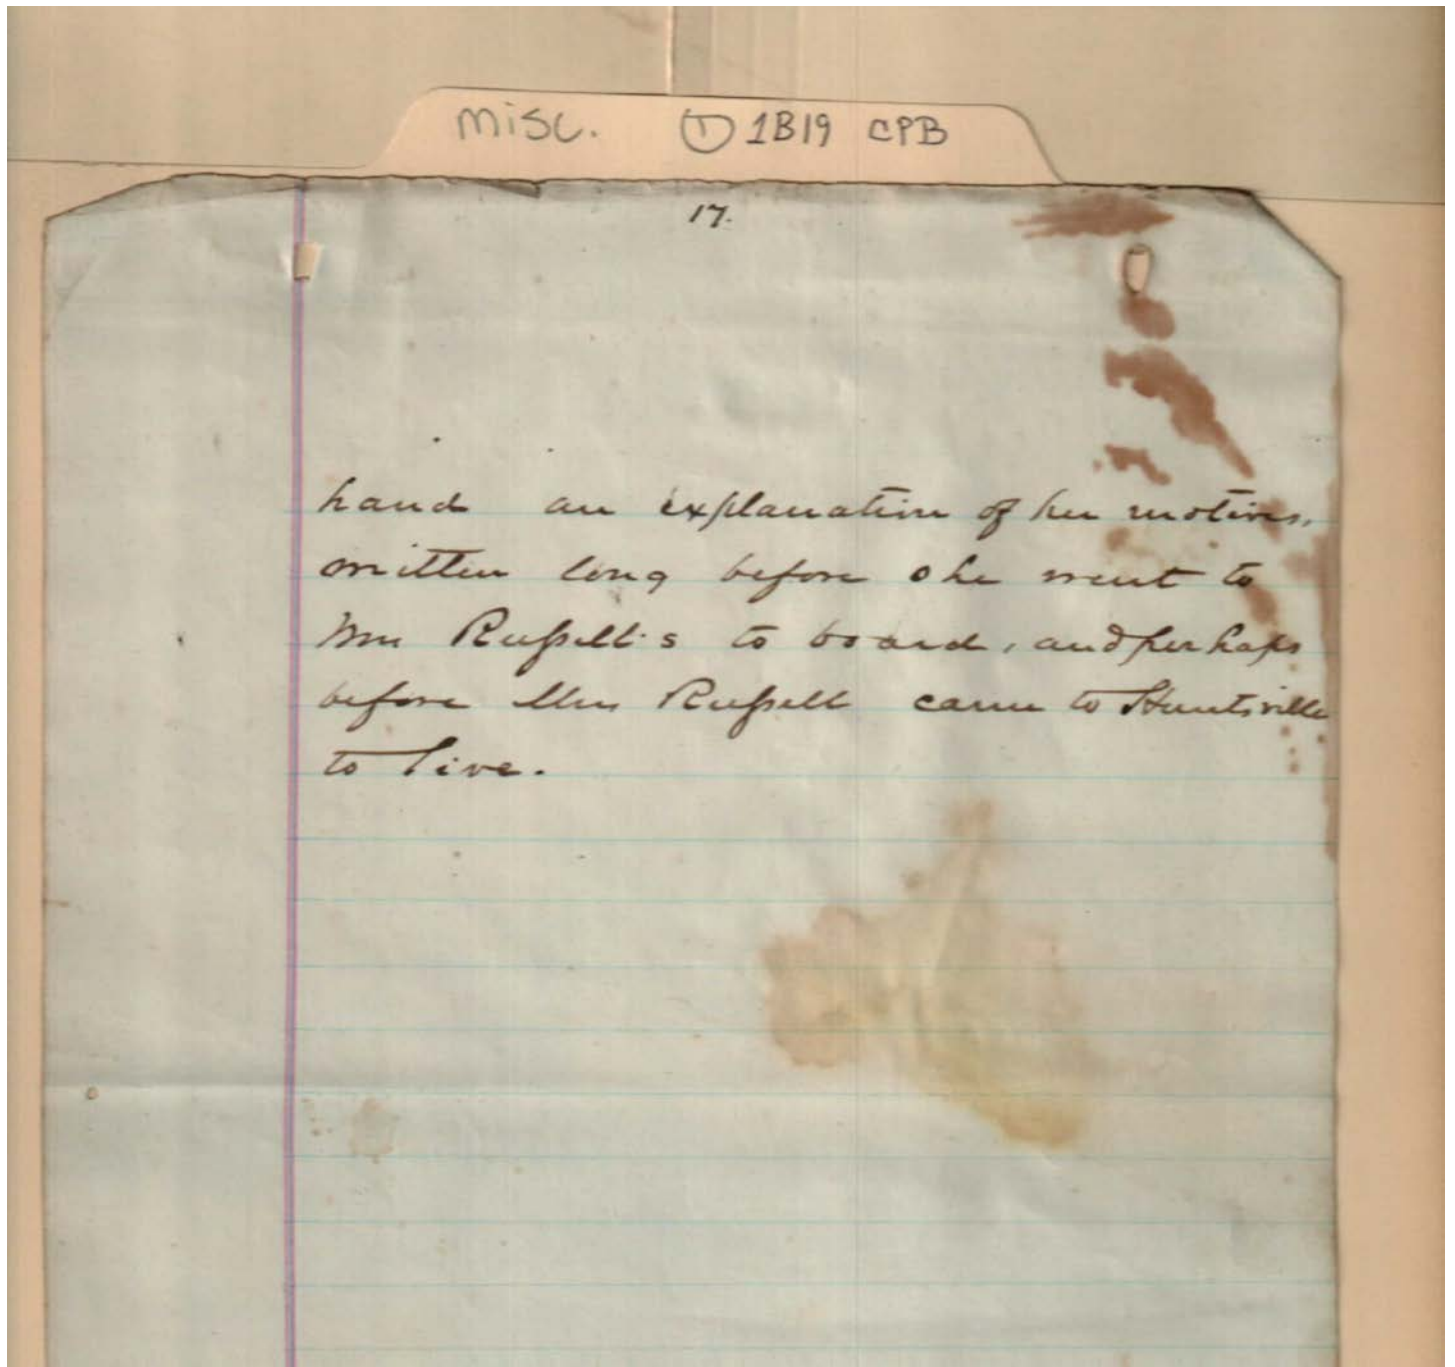 misc. ① 1B19 CPB
17.
hand an explanation of her motives,
written long before she went to
Mrs Russell's to board, and perhaps
before Mrs Russell came to Huntsville
to live.